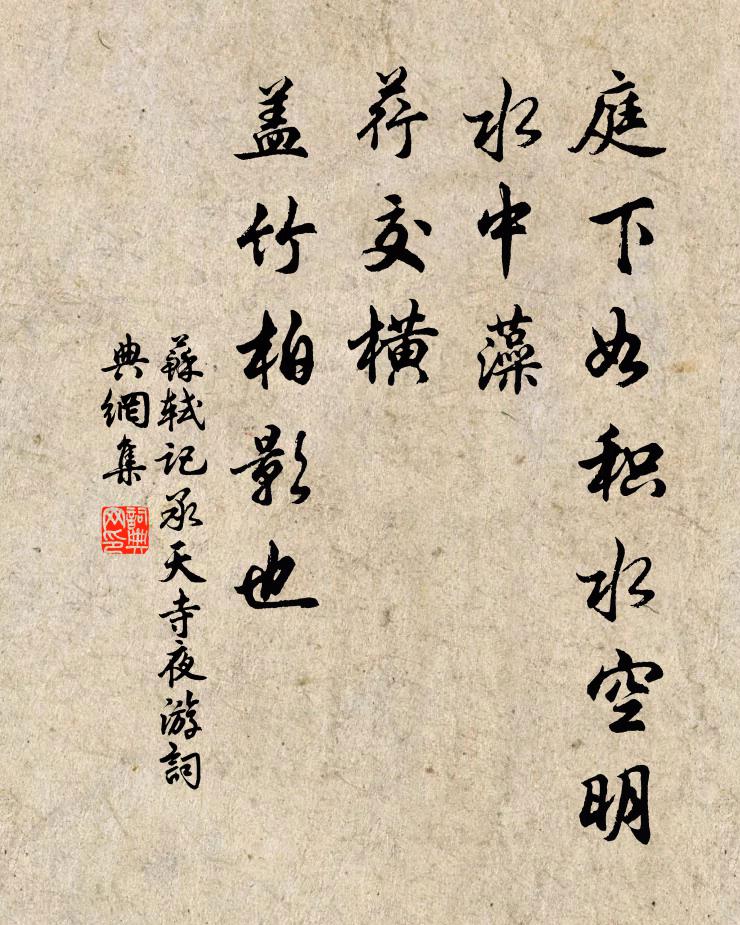 庭下如积水空明
水中藻
荇交横
盖竹柏影也
蘇軾记承天寺夜游詞
典網集
詞典网印